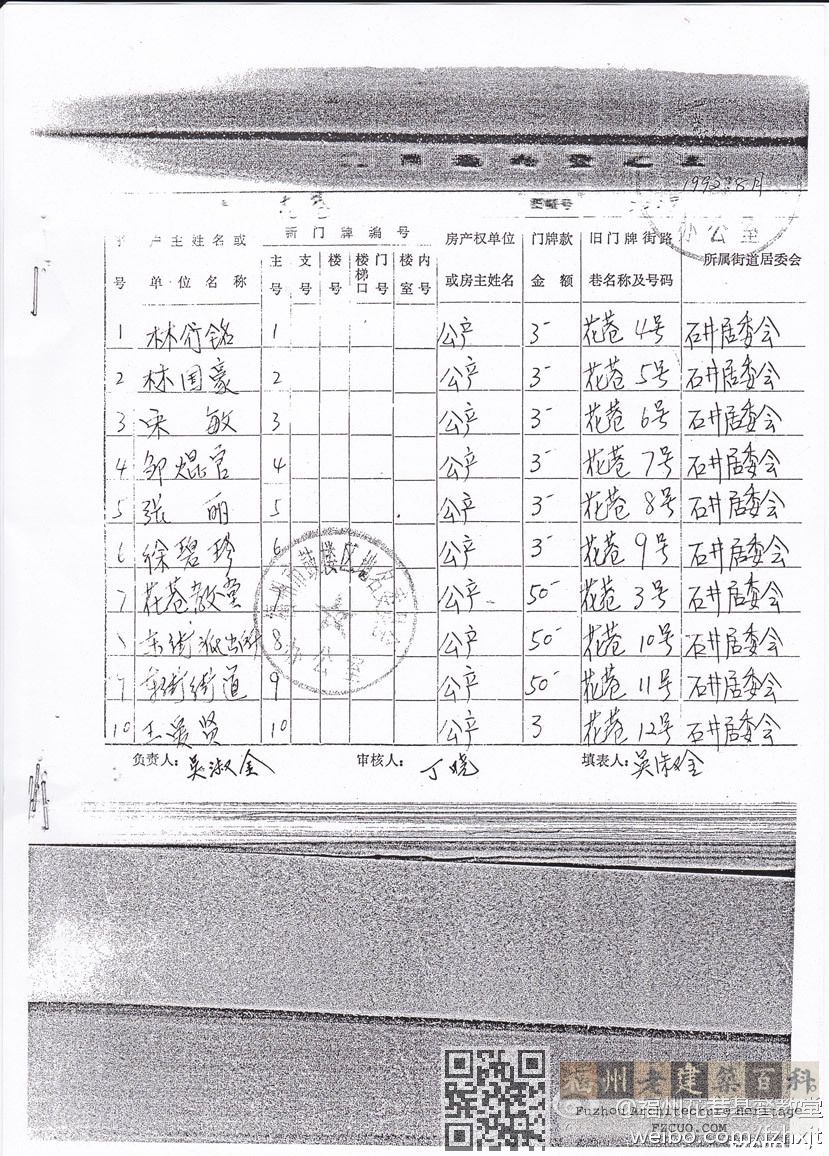 1992年8月
办公室
序 户主姓名或 新门牌编号 房产权单位 门牌款 旧门牌街路 所属街道居委会
号 单位名称 主号 支号 楼号 楼梯口 门号 楼室 内号 或房主姓名 金额 巷名称及号码
1 林衍铭 1 公产 3- 花巷 4号 石井居委会
2 林国豪 2 公产 3- 花巷 5号 石井居委会
3 宋敏 3 公产 3- 花巷 6号 石井居委会
4 邹焜官 4 公产 3- 花巷 7号 石井居委会
5 张丽 5 公产 3- 花巷 8号 石井居委会
6 徐碧珍 6 公产 3- 花巷 9号 石井居委会
7 花巷教堂 7 公产 50- 花巷 3号 石井居委会
8 东街派出所 8 公产 50- 花巷 10号 石井居委会
9 东街街道 9 公产 50- 花巷 11号 石井居委会
10 王爱贤 10 公产 3 花巷 12号 石井居委会
福州市鼓楼区地名委员会
办公室
负责人：吴淑金 审核人：丁晓 填表人：吴淑金
福州老建筑百科
@福州花巷基督教堂
Fuzhou Architecture Heritage
FZCUO.COM
weibo.com/fzhxjt